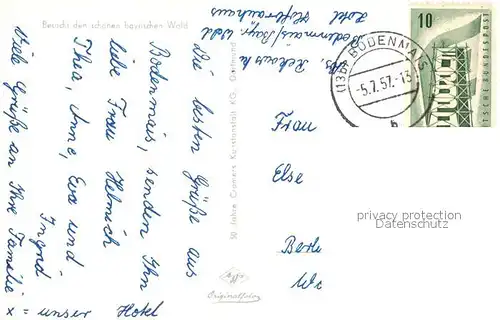 Besucht den schönen bayrischen Wald
Die besten Grüße aus
Bodenmais, senden Ihn
liebe Frau Helmich
Thea, Anne, Eva und
Ingrid
Viele Grüße an Ihre Familie
x = unser Hotel
50 Jahre Cramers Kunstanstalt KG, Dortmund
Agfa
Originalfoto
Bodenmais/Bayr. Wald
Hotel Hofbräuhaus
(13b) BODENMAIS
-5.7.57.-13
b
10
DEUTSCHE BUNDESPOST
Frau
Else
Berle
We
privacy protection
Datenschutz